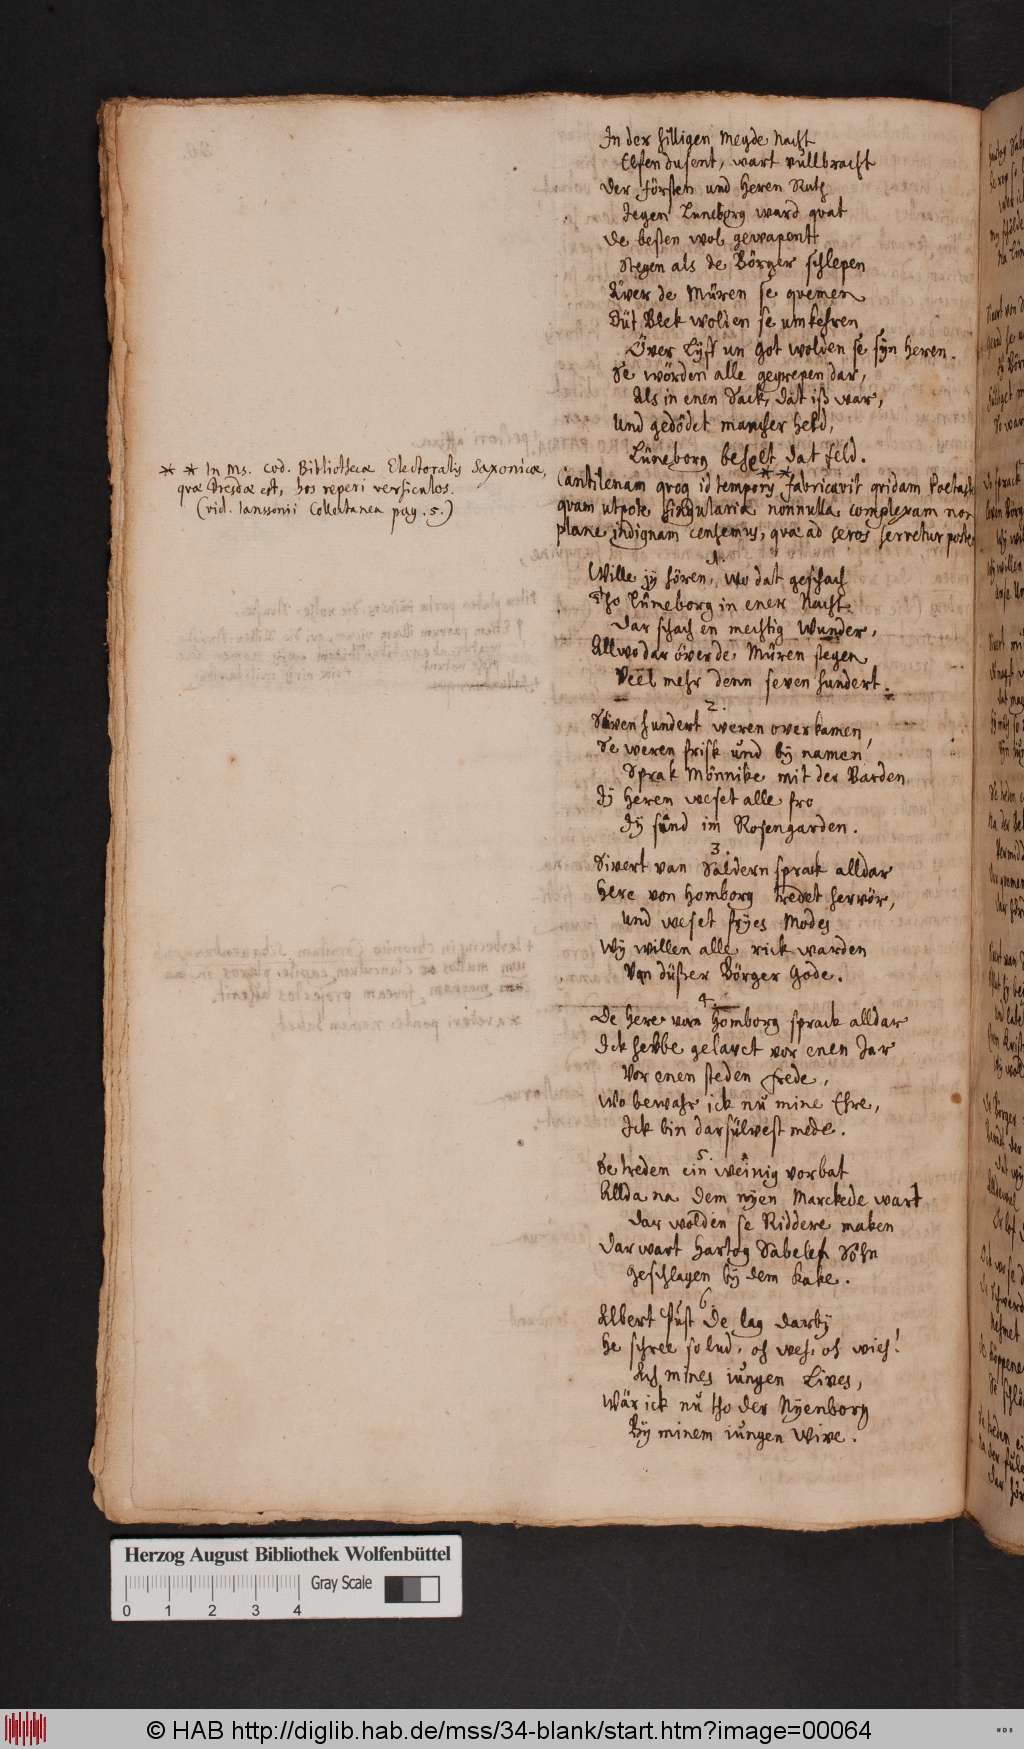 In der hilligen Meyde Nacht
Elfen dusent, wart vullbracht
Der Försten und Heren Rath
Jegen Luneborg ward quat
De besten wol gewapent
Stegen als de Börger schlepen
Äver de Müren se quemen
Düt Blek wolden se umkehren
Över Lyff un Got wolden se syn Heren.
Se wörden alle gegrepen dar,
Als in enen Sack, dat iß war,
Und gedödet mancher Held,
Lüneborg behelt dat feld.
** In Ms. Cod. Bibliothecæ Electoralis Saxonicæ,
quæ Dresdæ est, hos reperi versiculos.
(vid. Ianssonii Collectanea pag. 5.)
Cantilenam quoq id temporis ** fabricavit quidam Poetast
quam utpote singularia nonnulla complexam non
plane indignam censemus, quæ ad seros servetur poste
1.
Wille jy hören, wo dat geschach
Tho Lüneborg in ener Nacht
Dar schach en mechtig Wunder,
Allwo dar över de Müren stegen
Veel mehr denn seven hundert.
2.
Söven hundert weren overkamen,
Se weren frisk und by namen
Sprak Mönnike mit der Barden
Jy Heren weset alle fro
Jy sünd im Rosengarden.
3.
Sivert van Saldern sprack alldar
Here von Homborg tredet hervör,
Und weset fryes Modes
Wy willen alle rick warden
Van düßer Börger Gode.
4.
De Here van Homborg sprack alldar
Ick hebbe gelavet vor enen Jar
Vor enen steden frede,
Wo bewahr ick nu mine Ehre,
Ick bin darsülvest mede.
5.
Se treden ein weinig vorbat
Allda na dem nyen Marckede wart
Dar wolden se Riddere maken
Dar wart Hartog Sabelen Söhn
Geschlagen by dem Kake.
6.
Albert Pust de lag darby
He schree so lud, oh weh, oh wich!
Ach mines iungen Lives,
Wär ick nu tho der Nyenborg
By minem iungen Wive.
Herzog August Bibliothek Wolfenbüttel
Gray Scale
0 1 2 3 4
© HAB http://diglib.hab.de/mss/34-blank/start.htm?image=00064